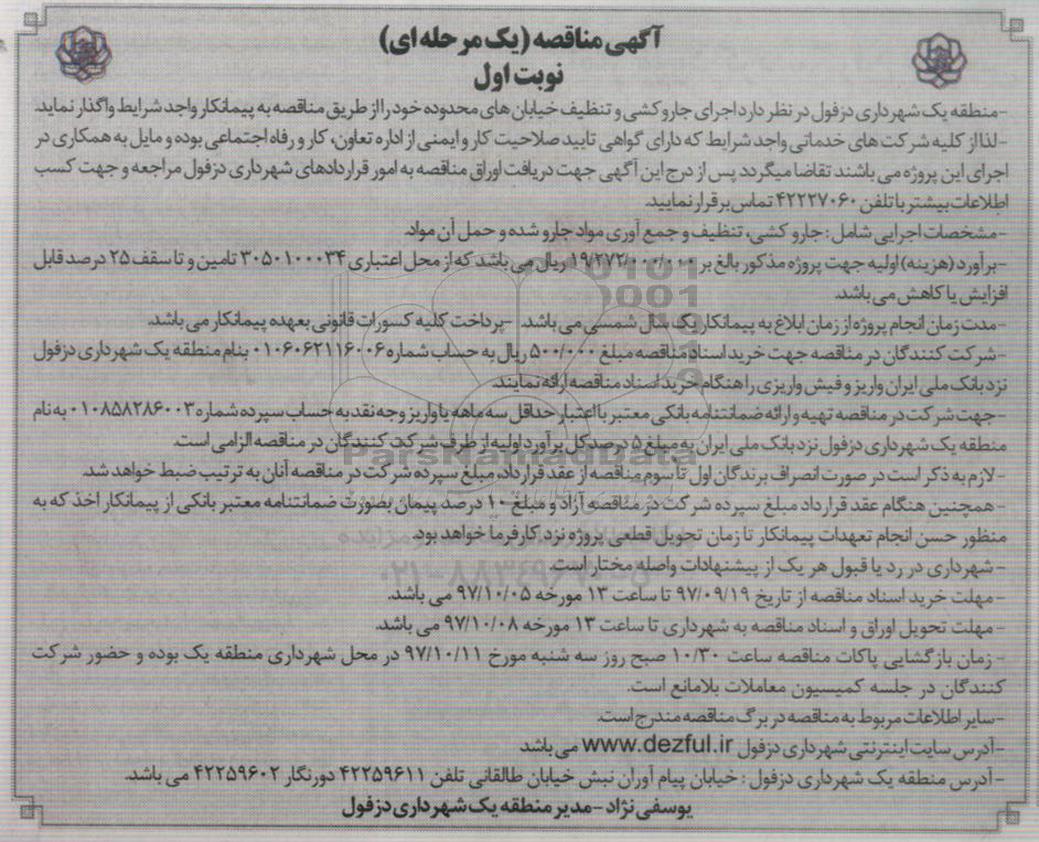 آگهی مناقصه (یک مرحله ای)
نوبت اول
-منطقه یک شهرداری دزفول در نظر دارد اجرای جاروکشی و تنظیف خیابان های محدوده خود را از طریق مناقصه به پیمانکار واجد شرایط واگذار نماید.
-لذا از کلیه شرکت های خدماتی واجد شرایط که دارای گواهی تایید صلاحیت کار و ایمنی از اداره تعاون، کار و رفاه اجتماعی بوده و مایل به همکاری در
اجرای این پروژه می باشند تقاضا میگردد پس از درج این آگهی جهت دریافت اوراق مناقصه به امور قراردادهای شهرداری دزفول مراجعه و جهت کسب
اطلاعات بیشتر با تلفن ۴۲۲۲۷۰۶۰ تماس برقرار نمایید.
-مشخصات اجرایی شامل : جارو کشی، تنظیف و جمع آوری مواد جارو شده و حمل آن مواد.
-برآورد (هزینه) اولیه جهت پروژه مذکور بالغ بر ۱۹/۲۷۲/۰۰۰/۰۰۰ ریال می باشد که از محل اعتباری ۳۰۵۰۱۰۰۰۳۴ تامین و تا سقف ۲۵ درصد قابل
افزایش یا کاهش می باشد.
-مدت زمان انجام پروژه از زمان ابلاغ به پیمانکار یک سال شمسی می باشد. -پرداخت کلیه کسورات قانونی بعهده پیمانکار می باشد.
-شرکت کنندگان در مناقصه جهت خرید اسناد مناقصه مبلغ ۵۰۰/۰۰۰ ریال به حساب شماره ۰۱۰۶۰۶۲۱۱۶۰۰۶ بنام منطقه یک شهرداری دزفول
نزد بانک ملی ایران واریز و فیش واریزی را هنگام خرید اسناد مناقصه ارائه نمایند.
-جهت شرکت در مناقصه تهیه و ارائه ضمانتنامه بانکی معتبر با اعتبار حداقل سه ماهه یا واریز وجه نقد به حساب سپرده شماره ۰۱۰۸۵۸۲۸۶۰۰۳ به نام
منطقه یک شهرداری دزفول نزد بانک ملی ایران به مبلغ ۵ درصد کل برآورد اولیه از طرف شرکت کنندگان در مناقصه الزامی است.
-لازم به ذکر است در صورت انصراف برندگان اول تا سوم مناقصه از عقد قرارداد، مبلغ سپرده شرکت در مناقصه آنان به ترتیب ضبط خواهد شد.
-همچنین هنگام عقد قرارداد مبلغ سپرده شرکت در مناقصه آزاد و مبلغ ۱۰ درصد پیمان بصورت ضمانتنامه معتبر بانکی از پیمانکار اخذ که به
منظور حسن انجام تعهدات پیمانکار تا زمان تحویل قطعی پروژه نزد کارفرما خواهد بود.
-شهرداری در رد یا قبول هر یک از پیشنهادات واصله مختار است.
-مهلت خرید اسناد مناقصه از تاریخ ۹۷/۰۹/۱۹ تا ساعت ۱۳ مورخه ۹۷/۱۰/۰۵ می باشد.
-مهلت تحویل اوراق و اسناد مناقصه به شهرداری تا ساعت ۱۳ مورخه ۹۷/۱۰/۰۸ می باشد.
- زمان بازگشایی پاکات مناقصه ساعت ۱۰/۳۰ صبح روز سه شنبه مورخ ۹۷/۱۰/۱۱ در محل شهرداری منطقه یک بوده و حضور شرکت
کنندگان در جلسه کمیسیون معاملات بلامانع است.
-سایر اطلاعات مربوط به مناقصه در برگ مناقصه مندرج است.
-آدرس سایت اینترنتی شهرداری دزفول www.dezful.ir می باشد
-آدرس منطقه یک شهرداری دزفول : خیابان پیام آوران نبش خیابان طالقانی تلفن ۴۲۲۵۹۶۱۱ دورنگار ۴۲۲۵۹۶۰۲ می باشد.
یوسفی نژاد -مدیر منطقه یک شهرداری دزفول
ParsNamadData
۰۲۱-۸۸۳۴۹۶۷۰-۵